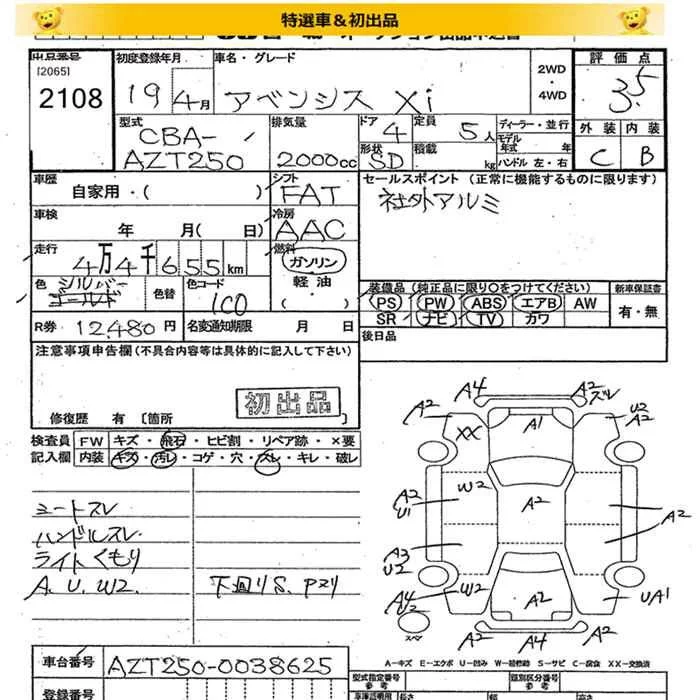 特選車＆初出品
出品番号
[2065]
2108
初度登録年月
19 4月
車名・グレード
アベンシス Xi
2WD
・
4WD
評価点
3.5
外装 内装
C B
型式
CBA-
AZT250
排気量
2000cc
ドア 4
形状 SD
定員 5人
積載 kg
ディーラー・並行
モデル
年式 年
ハンドル 左・右
車歴
自家用・( )
シフト
FAT
セールスポイント (正常に機能するものに限ります)
社外アルミ
車検
年 月( 日)
冷房
AAC
走行
4万4千655km
燃料
ガソリン
軽油
・
( )
色 シルバー
ゴールド
色替
色コード
1C0
装備品 (純正品に限り○をつけてください)
PS PW ABS エアB AW
SR ナビ TV カワ
新車保証書
有・無
R券 12,480円
名変通知期限 月 日
後日品
注意事項申告欄(不具合内容等は具体的に記入して下さい)
初出品
修復歴 有 [箇所
検査員
記入欄
FW キズ・飛石・ヒビ割・リペア跡・×要
内装 キズ・汚レ・コゲ・穴・スレ・キレ・破レ
シートスレ
ハンドルスレ
ライトくもり
A. U. W2.
下回りS. Pサリ
A4
A2
ズレ
A2
XX
A1
U2
A2
A2
U1
W2
A2
A2
A3
U2
A4
U2
W2
A2
UA1
A2
A4
A2
スペア
A－キズ E－エクボ U－凹み W－補修跡 S－サビ C－腐食 XX－交換済
車台番号
AZT250-0038625
登録番号
型式指定番号
参考
類別区分番号
参考
長さ